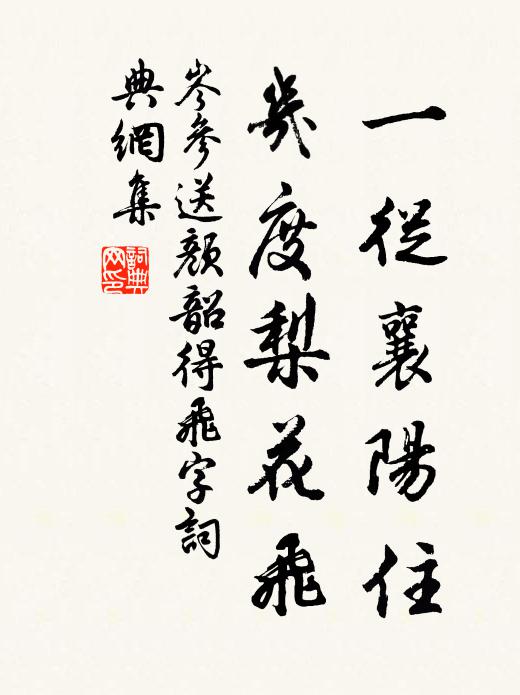 一從襄陽住
幾度梨花飛
岑參送顏韶得飛字詞
典網集
詞典
网印